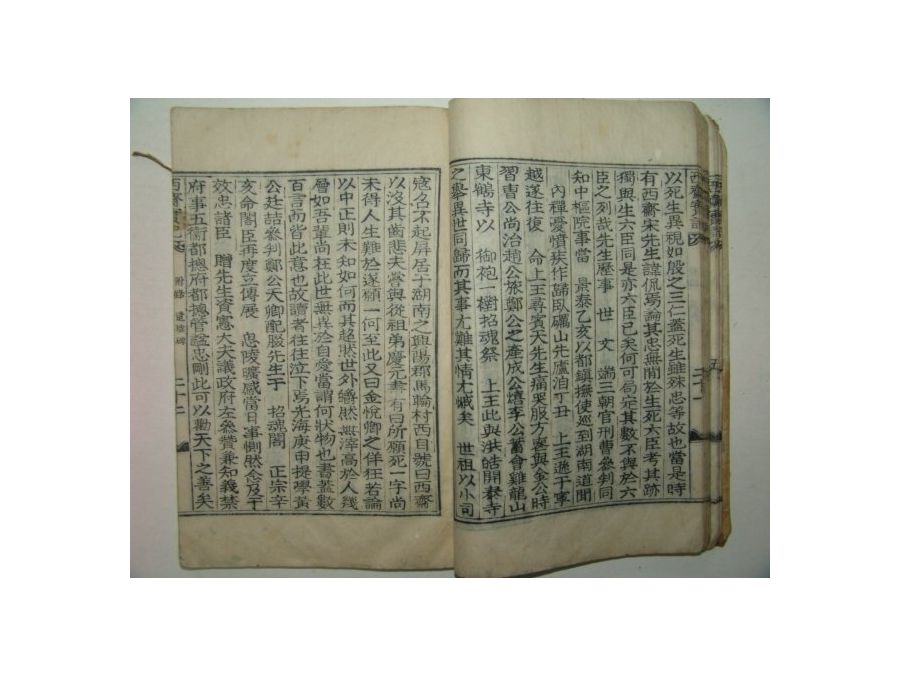 以死生異視如殷之三仁蓋死生雖殊忠等故也當是時
有西齋宋先生諱侃焉論其忠無間於生死六臣考其跡
獨與生六臣同是亦六臣已矣何可局定其數不與於六
臣之列哉先生歷事 世 文 端三朝官刑曹參判同
知中樞院事當 景泰乙亥以都鎭撫使巡到湖南道聞
內禪憂憤疾作歸臥礪山先廬泊丁丑 上王遜于寧
越遂往復 命上王尋賓天先生痛哭服方喪與金公時
習曺公尚治趙公旅鄭公之產成公熺李公蓄會雞龍山
東鶴寺以 御袍一樹招魂祭 上王此與洪皓開泰寺
之舉異世同歸而其事尤難其情尤慽矣 世祖以小司
寇召不起屏居于湖南之興陽郡馬輪村西自號曰西齋
以沒其齒悲夫嘗與從祖弟慶元書有曰所願死一字尚
未得人生難於遂願一何至此又曰金悅卿之佯狂若論
以中正則未知如何而其超然世外皭然無滓高於人幾
層如吾輩尚在此世無異於自愛當謂何狀物也書蓋數
百言而皆此意也故讀者往往泣下焉光海庚申提學黃
公廷喆參判鄭公天卿配설先生于 招魂閣 正宗辛
亥命閣臣再度立傳展 思陵曠感當日事惻然念及于
效忠諸臣 贈先生資憲大夫議政府左參贊兼知義禁
府事五衛都摠府都摠管諡忠剛此可以勸天下之善矣
西齋實記 附錄 遺墟碑 二十二